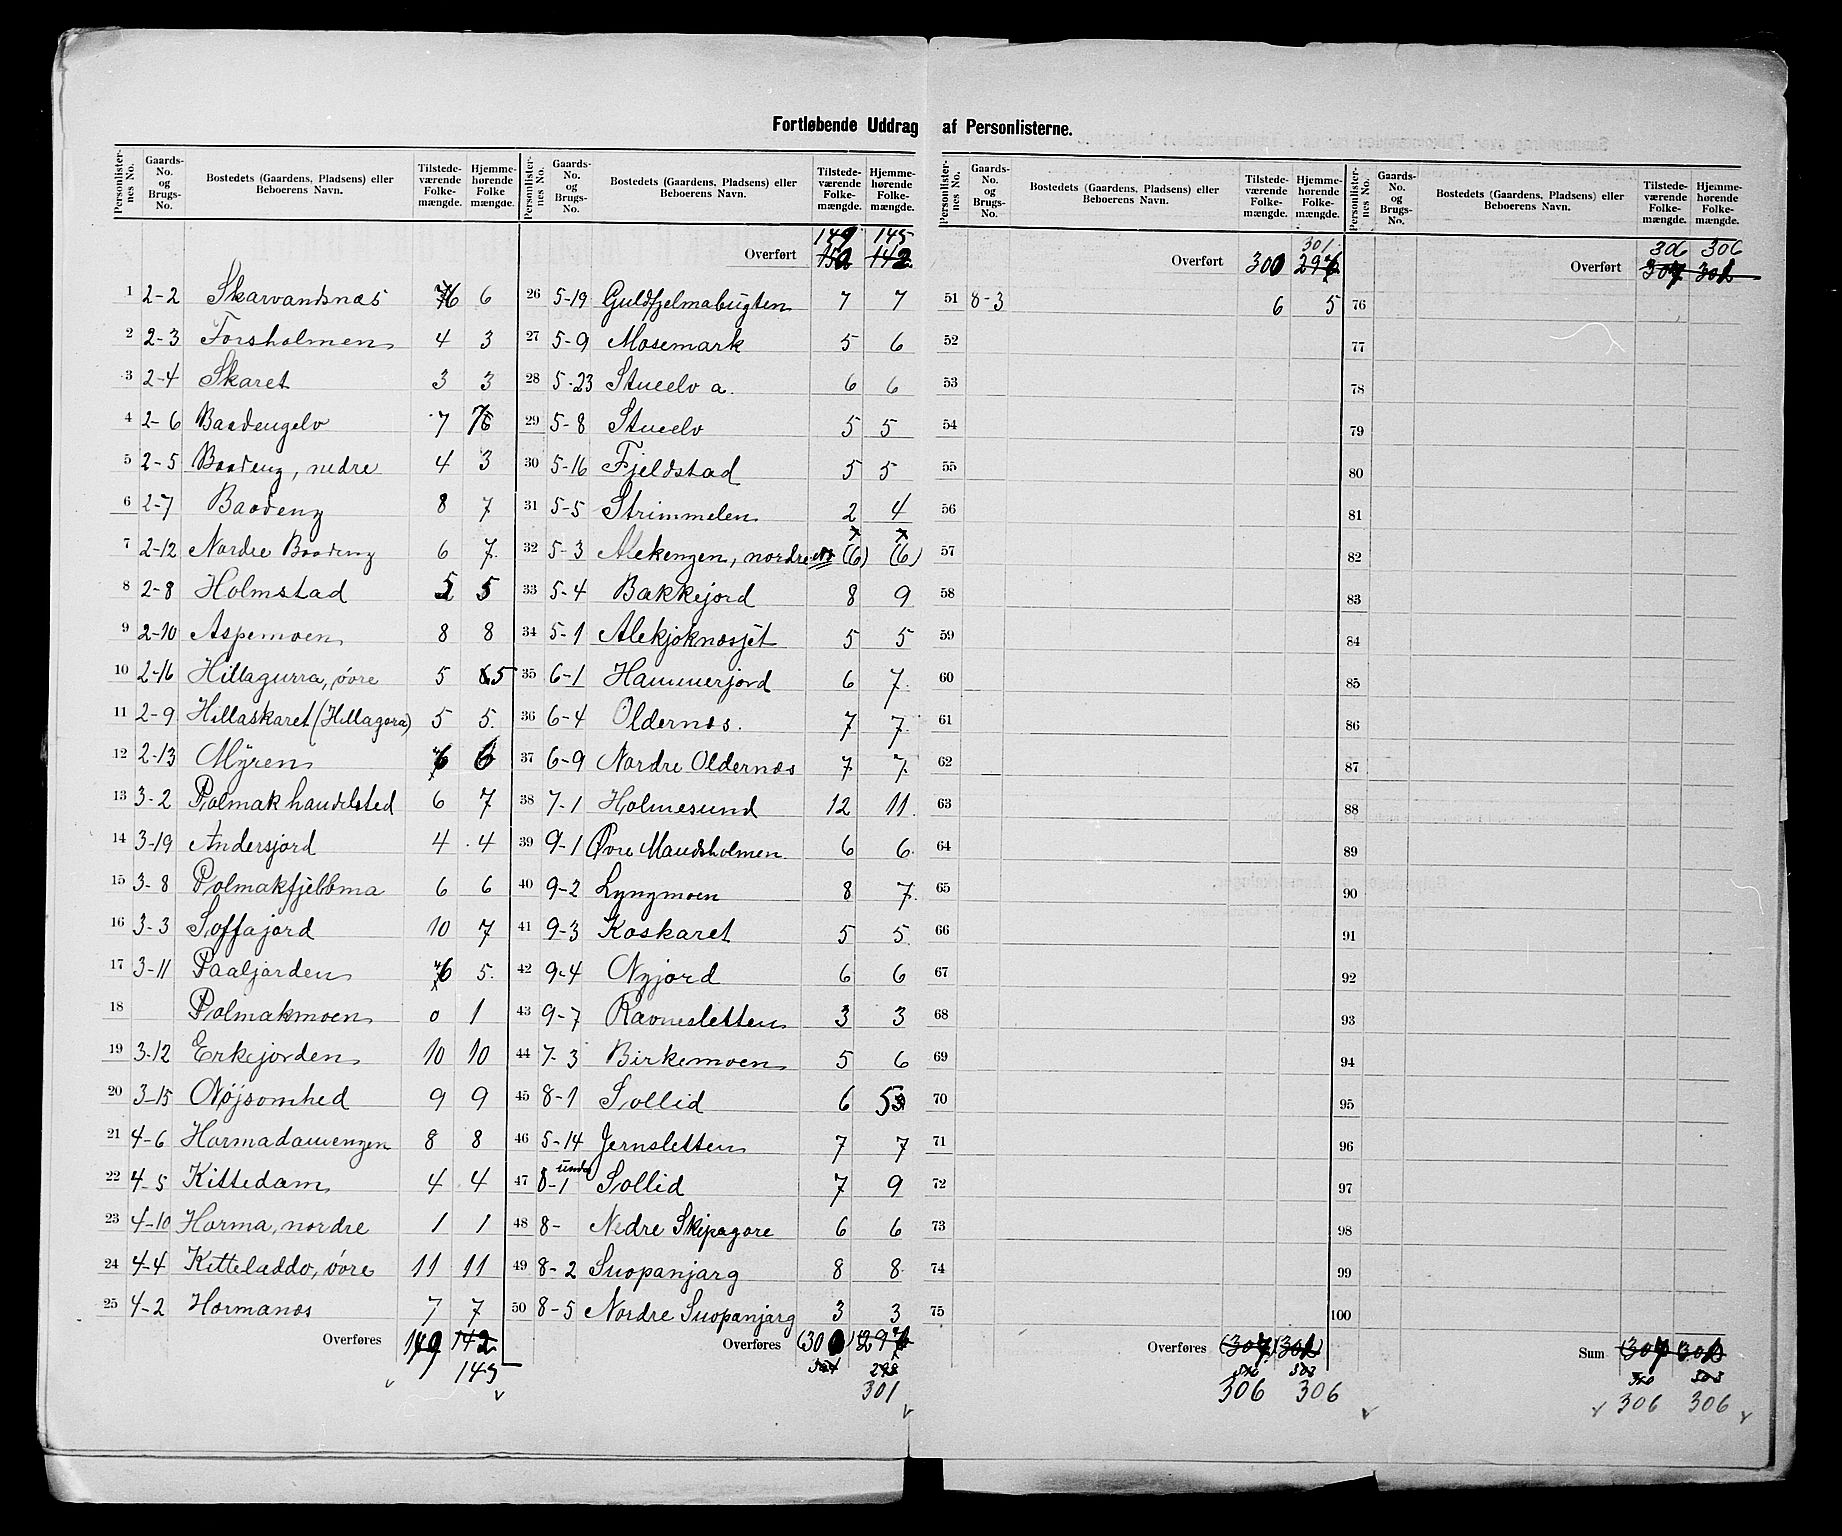 Fortløbende Uddrag af Personlisterne.
Personlisternes No. Gaards-No. og Brugs-No. Bostedets (Gaardens, Pladsens) eller Beboerens Navn. Tilstedeværende Folkemængde. Hjemmehørende Folkemængde.
1 2-2 Skarvandsnæs 6 6
2 2-3 Forsholmen 4 3
3 2-4 Skaret 3 3
4 2-6 Baadengelv 7 7
5 2-5 Baadeng, nedre 4 3
6 2-7 Baadeng 8 7
7 2-12 Nordre Baadeng 6 7
8 2-8 Holmstad 5 5
9 2-10 Aspemoen 8 8
10 2-16 Hillagurra, øvre 5 5
11 2-9 Hillaskaret (Hillagora) 5 5
12 2-13 Myren 6 6
13 3-2 Polmak handelsted 6 7
14 3-19 Andersjord 4 4
15 3-8 Polmakfjebbma 6 6
16 3-3 Soffajord 10 7
17 3-11 Paaljorden 6 5
18 Polmakmoen 0 1
19 3-12 Erkejorden 10 10
20 3-15 Nøjsomhed 9 9
21 4-6 Hormadamengen 8 8
22 4-5 Kittedam 4 4
23 4-10 Horma, nordre 1 1
24 4-4 Kitteladdo, øvre 11 11
25 4-2 Hormanæs 7 7
Overføres 149 142
145
Personlisternes No. Gaards-No. og Brugs-No. Bostedets (Gaardens, Pladsens) eller Beboerens Navn. Tilstedeværende Folkemængde. Hjemmehørende Folkemængde.
149 145
Overført 150 142
26 5-19 Guldfjelmabugten 7 7
27 5-9 Mosemark 5 6
28 5-23 Stuelv a. 6 6
29 5-8 Stuelv 5 5
30 5-16 Fjeldstad 5 5
31 5-5 Strimmelen 2 4
32 5-3 Alekengen, nordre (6) (6)
33 5-4 Bakkejord 8 9
34 5-1 Alekjoknæsjet 5 5
35 6-1 Hammerjord 6 7
36 6-4 Oldernæs. 7 7
37 6-9 Nordre Oldernæs 7 7
38 7-1 Holmesund 12 11
39 9-1 Øvre Mandsholmen 6 6
40 9-2 Lyngmoen 8 7
41 9-3 Koskaret 5 5
42 9-4 Nyjord 6 6
43 9-7 Ravnesletten 3 3
44 7-3 Birkemoen 5 6
45 8-1 Sollid 6 5
46 5-14 Jernsletten 7 7
47 under 8-1 Sollid 7 9
48 8- Nedre Skipagore 6 6
49 8-2 Suopanjarg 8 8
50 8-5 Nordre Suopanjarg 3 3
Overføres (300) (297)
298
301
Personlisternes No. Gaards-No. og Brugs-No. Bostedets (Gaardens, Pladsens) eller Beboerens Navn. Tilstedeværende Folkemængde. Hjemmehørende Folkemængde.
301
Overført 300 297
51 8-3 6 5
52
53
54
55
56
57
58
59
60
61
62
63
64
65
66
67
68
69
70
71
72
73
74
75
Overføres (307) (302)
303
306 306
Personlisternes No. Gaards-No. og Brugs-No. Bostedets (Gaardens, Pladsens) eller Beboerens Navn. Tilstedeværende Folkemængde. Hjemmehørende Folkemængde.
306 306
Overført 307 302
76
77
78
79
80
81
82
83
84
85
86
87
88
89
90
91
92
93
94
95
96
97
98
99
100
Sum (307) (302)
303
306 306